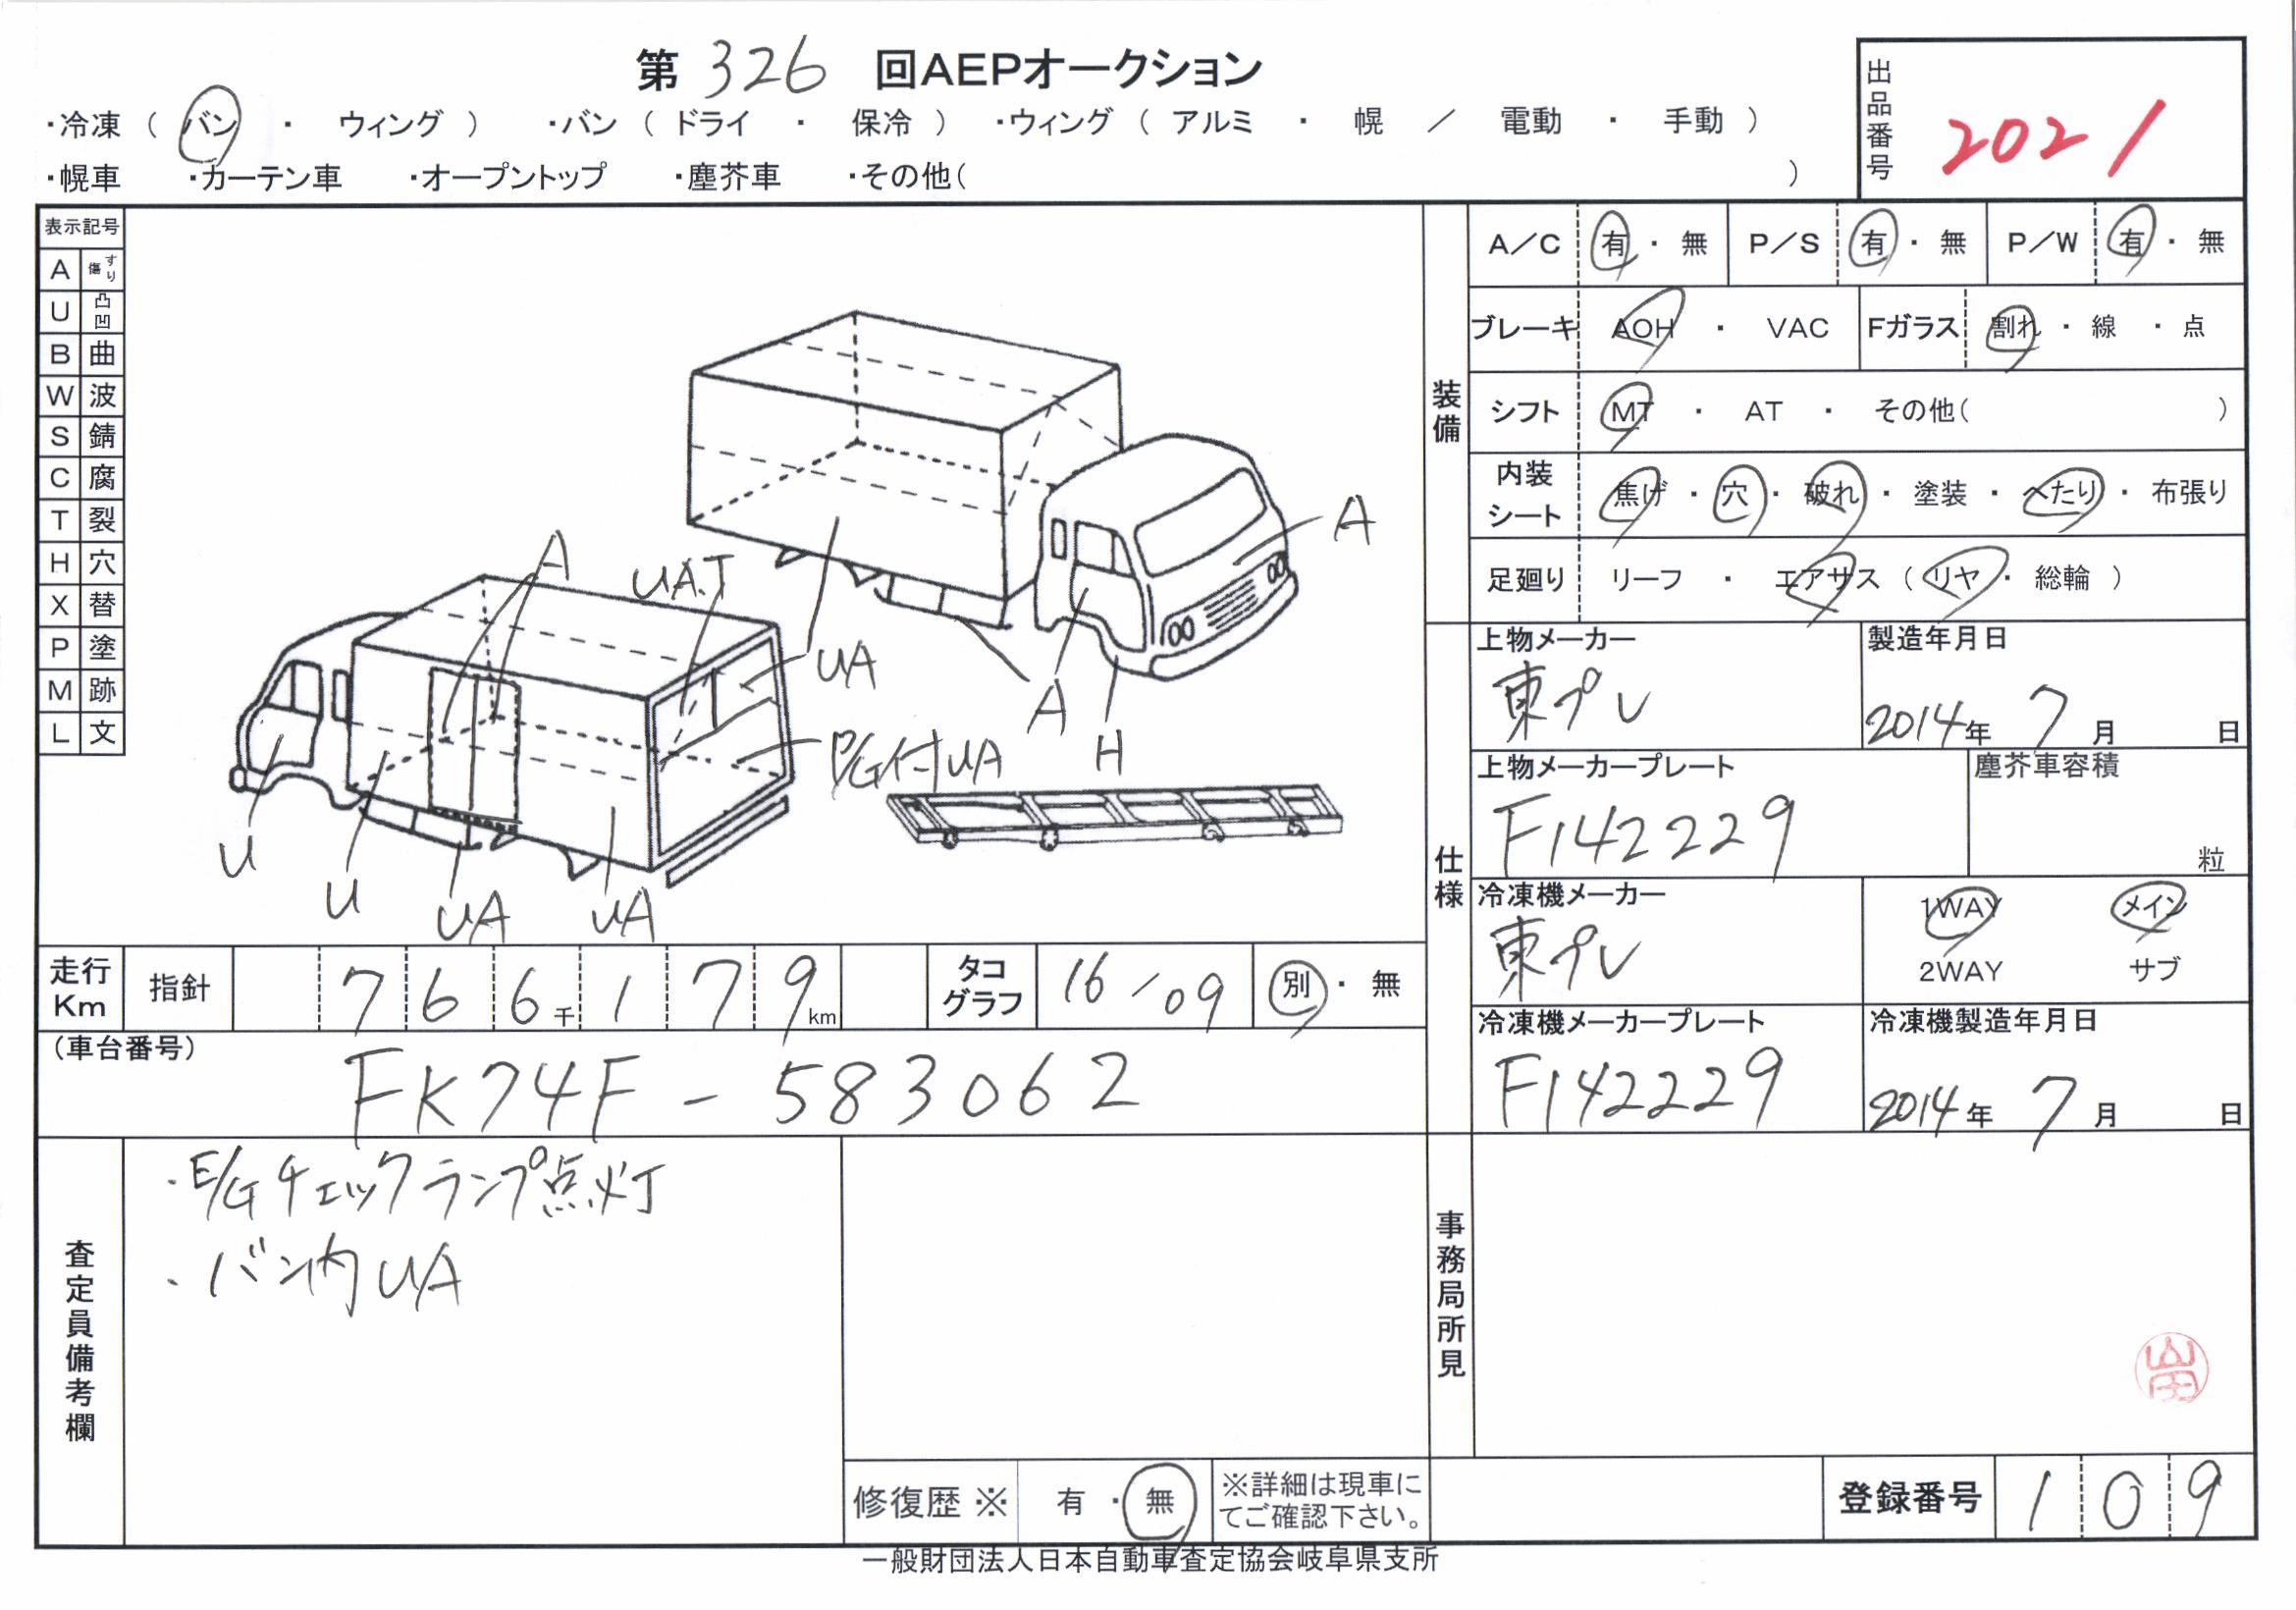 第 326 回AEPオークション
・冷凍 （ バン ・ ウィング ） ・バン （ ドライ ・ 保冷 ） ・ウィング （ アルミ ・ 幌 ／ 電動 ・ 手動 ）
・幌車 ・カーテン車 ・オープントップ ・塵芥車 ・その他（ ）
出品番号 2021
表示記号
A すり傷
U 凸凹
B 曲
W 波
S 錆
C 腐
T 裂
H 穴
X 替
P 塗
M 跡
L 文
A
A
UA.T
UA
A
P/G付UA
H
U
U
UA
UA
装備
A／C 有 ・ 無 P／S 有 ・ 無 P／W 有 ・ 無
ブレーキ AOH ・ VAC Fガラス 割れ ・ 線 ・ 点
シフト MT ・ AT ・ その他（ ）
内装シート 焦げ ・ 穴 ・ 破れ ・ 塗装 ・ へたり ・ 布張り
足廻り リーフ ・ エアサス （ リヤ ・ 総輪 ）
仕様
上物メーカー 製造年月日
東プレ 2014年 7月 日
上物メーカープレート 塵芥車容積
F142229 粒
冷凍機メーカー 1WAY メイン
東プレ 2WAY サブ
冷凍機メーカープレート 冷凍機製造年月日
F142229 2014年 7月 日
走行Km 指針 7 6 6千 1 7 9km タコグラフ 16/09 別 ・ 無
（車台番号） FK74F-583062
査定員備考欄
・E/Gチェックランプ点灯
・バン内UA
修復歴 ※ 有 ・ 無 ※詳細は現車にてご確認下さい。
事務局所見
山田
登録番号 1 0 9
一般財団法人日本自動車査定協会岐阜県支所